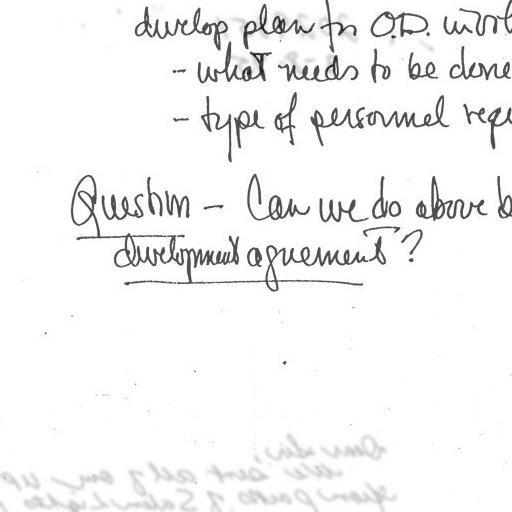 develop plan for O.D. invol
- what needs to be done
- type of personnel requ
Question - Can we do above b
development agreement?